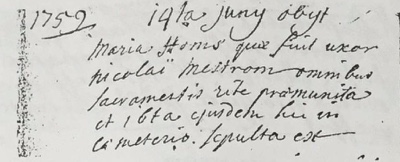 1759 14ta Juny obyt
Maria Homs quæ fuit uxor
nicolaï mestrom omnibus
sacramentis rite præmunita
et 16ta ejusdem hic in
cæmeterio sepulta est